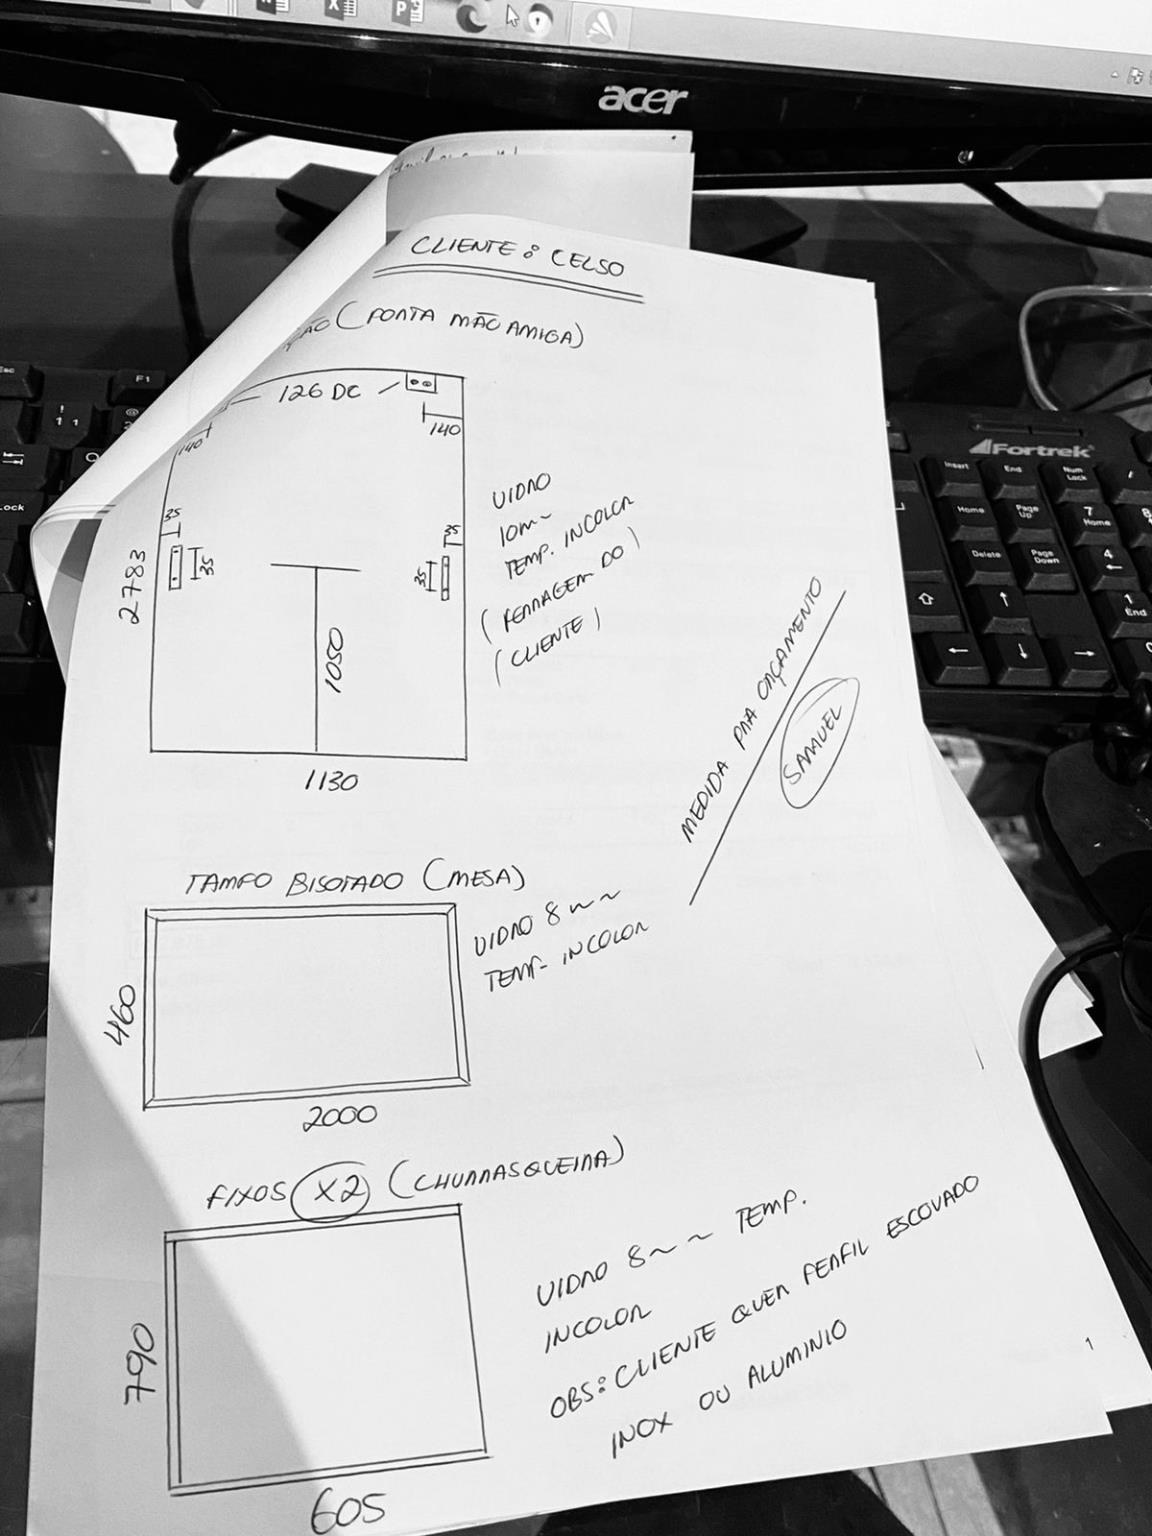 acer
CLIENTE: CELSO
ÇÃO (PORTA MÃO AMIGA)
126 DC
140
140
35
35
35
35
2783
1050
1130
VIDRO
10m~
TEMP. INCOLOR
(FERRAGEM DO)
(CLIENTE)
MEDIDA PRA ORÇAMENTO
SAMUEL
TAMPO BISOTADO (MESA)
VIDRO 8~~
TEMP- INCOLOR
460
2000
FIXOS X2 (CHURRASQUEIRA)
VIDRO 8~~ TEMP.
INCOLOR
OBS: CLIENTE QUER PERFIL ESCOVADO
INOX OU ALUMINIO
790
605
1
Fortrek
Esc
F1
!
1 1
@
Q
Lock
Insert
End
Num
Lock
/
Home
Page
Up
7
Home
Delete
Page
Down
4
1
End